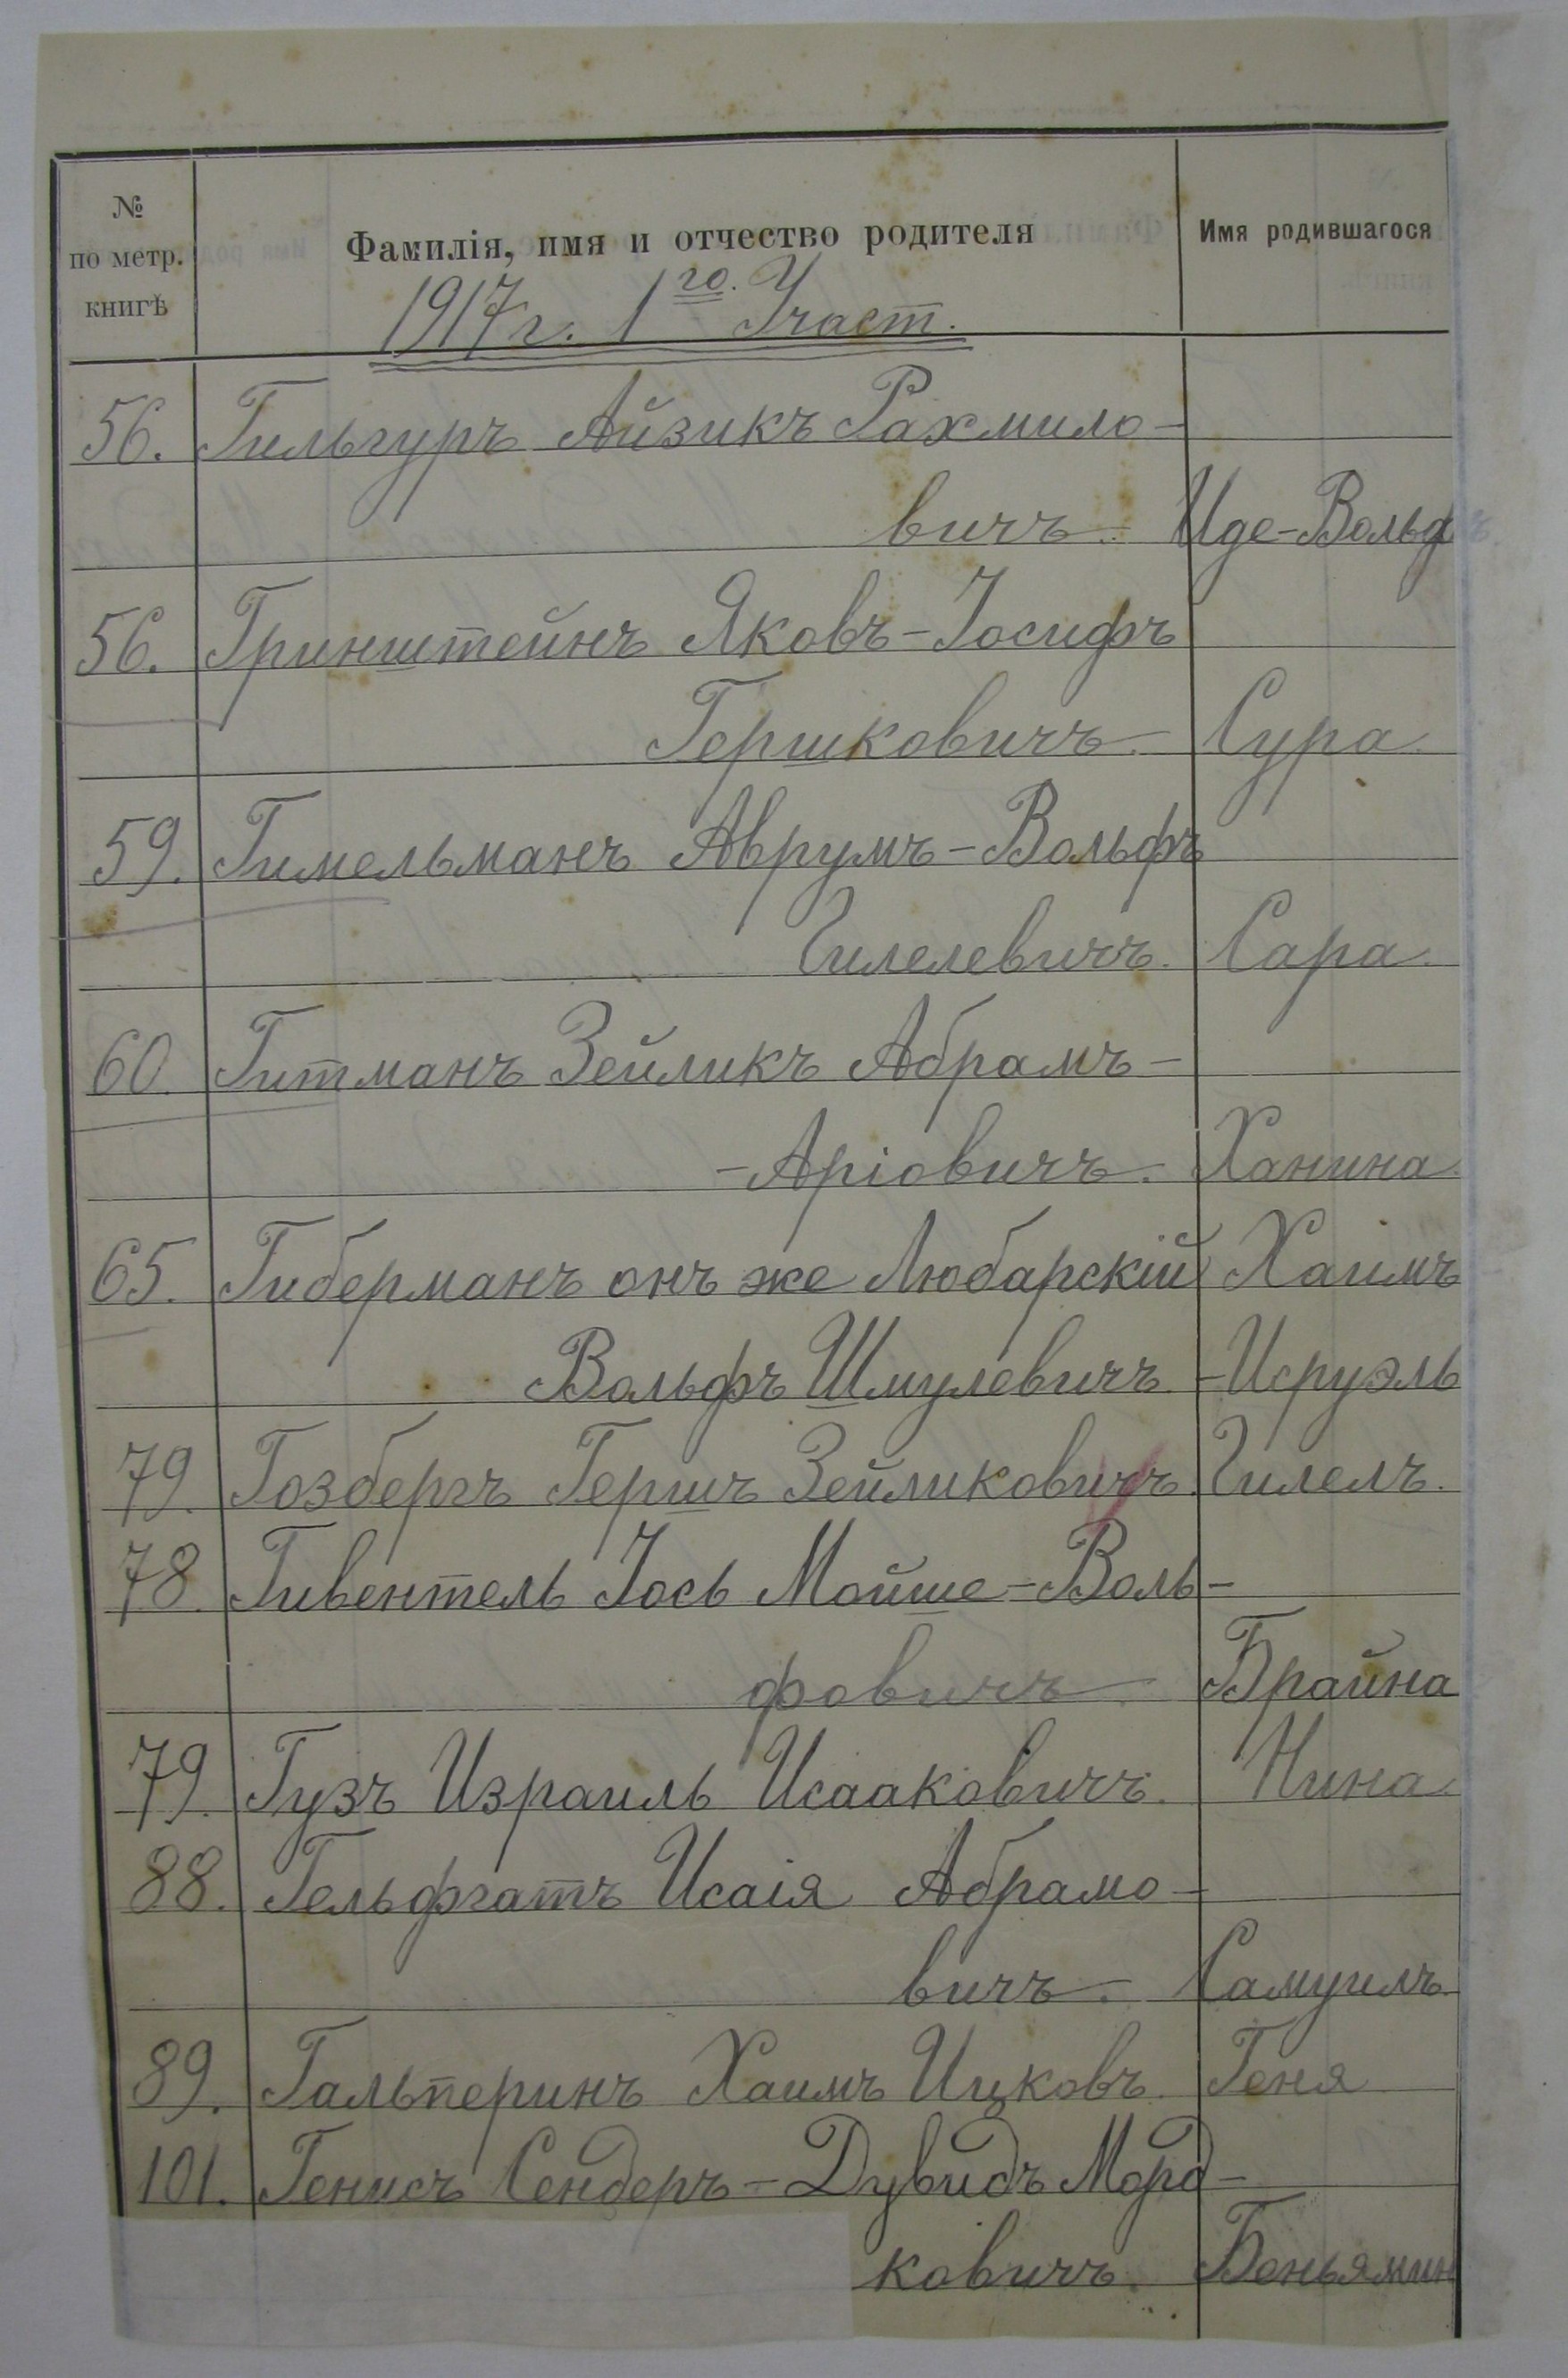 № по метр. книгѣ
Фамилія, имя и отчество родителя
Имя родившагося
1917 г. 1го. Участ.
56. Гильгуръ Айзикъ Рахмило-
вичъ. Иде-Вольф
56. Гринштейнъ Яковъ-Іосифъ
Гершковичъ. Сура
59. Гимельманъ Аврумъ-Вольфъ
Гилелевичъ. Сара
60. Гитманъ Зейликъ Абрамъ-
-Аріовичъ. Ханина
65. Гиберманъ онъ же Любарскій Хаимъ
Вольфъ Шмулевичъ. -Исруэль
79. Гозбергъ Гершъ Зейликовичъ. Гилелъ.
78. Гивентель Іось Мойше-Воль-
фовичъ Брайна
79. Гузъ Израиль Исааковичъ. Нина
88. Гельфгатъ Исаія Абрамо-
вичъ. Самуилъ
89. Гальперинъ Хаимъ Ицковъ. Геня
101. Генисъ Сендеръ-Дувидъ Морд-
ковичъ. Беньямин